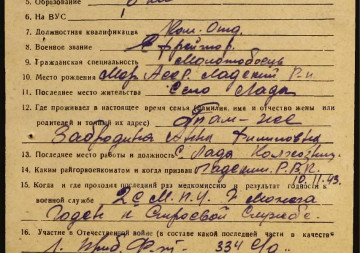 5. Образование
6. На ВУС
7. Должностная квалификация Ком. Отд.
8. Военное звание Ефрейтор.
9. Гражданская специальность Молотобоец
10. Место рождения Мор. АССР. Ладский Р-н
11. Последнее место жительства Село Лада
12. Где проживает в настоящее время семья (фамилия, имя и отчество жены или
родителей и точный их адрес) Там-же
Завродина Анна
13. Последнее место работы и должность С. Лада Колхозник.
14. Каким райгорвоенкоматом и когда призван Ладским. Р.В.К.
10.11.43
15. Когда и где проходил последний раз медкомиссию и результат годности к
военной службе 2е М.П.У.
Годен к Строевой Службе.
16. Участие в Отечественной войне (в составе какой последней части в качестве
1. Приб. Ф-т 334 С/Д.